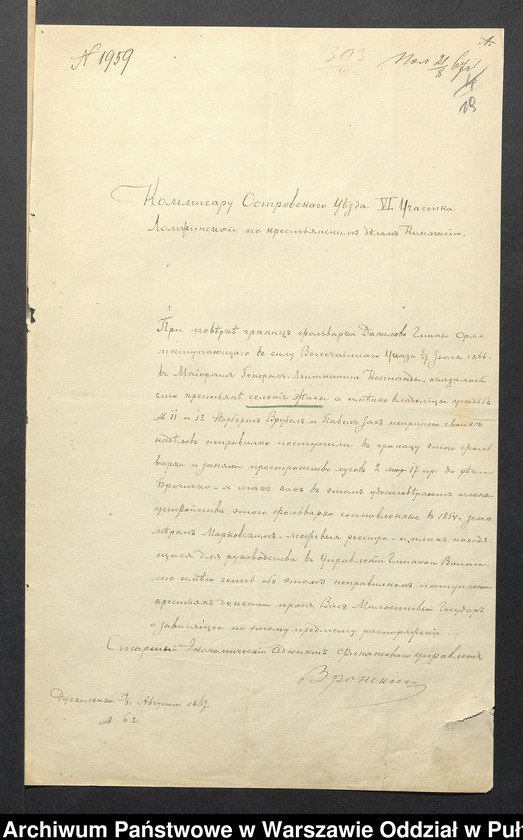 N 1959
303
Пол 21/8 67
1.
Коммисару Островскаго Уѣзда VI Участка
Ломжинской по крестьянскимъ дѣламъ Коммисіи.
При повѣркѣ границъ фольварка Данилово Глины Орло
поступающаго въ силу Высочайшаго Указа 5/17 Іюля 1866.
въ Маіоратъ Генералъ-Лейтенанта Костанды, оказалось
что крестьяне селенія Жахы а имѣнно владѣльцы усадьбъ
N 11 и 12 Норбертъ Врубель и Павелъ Зах шириною своихъ
надѣловъ неправильно поступили въ границу этого фоль
варка и заняли пространство луговъ 2 мор. 17 пр. до рѣки
а такъ какъ въ этомъ удостовѣряютъ планы
устройства этого фольварка составленные въ 1854 г.Земле
мѣромъ Марковскимъ реестръ и планъ находя
щіеся для руководства въ Управленіи Глинского Войта
то имѣю честь объ этомъ неправильномъ поступленіи
крестьянъ донести прося Васъ Милостивый Государь
о зависящее по этому предмету распоряженіе.
Старшій Экономическій Адъюнктъ Финансоваго Управленія
Вронскій
19/31 Августа 1867
N 62
Archiwum Państwowe w Warszawie Oddział w Puł